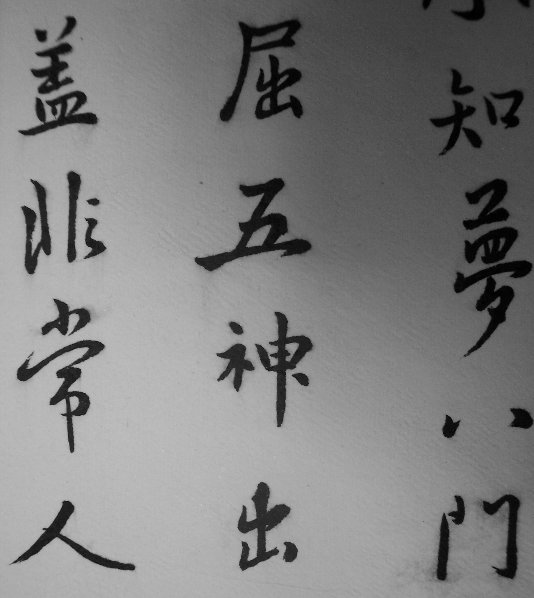 知夢八門
屈五神出
蓋非常人